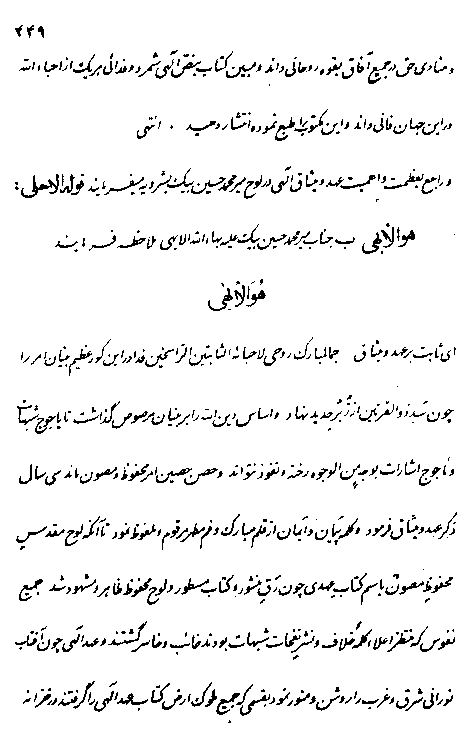 ۴۴۹
و منادی حق در جمیع آفاق بقوه روحانی داند و مبین کتاب بنص الهی شمرد و فدائی هر یک از احباء الله
در این جهان فانی داند و این مکتوب را طبع نموده انتشار دهید . انتهی
و راجع بعظمت و اهمیت عهد و میثاق الهی در لوح میر محمد حسین بیک بشرویه میفرمایند قوله الاعلی :
هوالابهی ب جناب میر محمد حسین بیک علیه بهاءالله الابهی ملاحظه فرمایند
هوالابهی
ای ثابت بر عهد و میثاق جمالمبارک روحی لاحبائه الثابتین الراسخین فدا در این کور عظیم بنیان امر را
چون سد ذوالقرنین از زبر حدید نهاد و اساس دین الله را بر بنیان مرصوص گذاشت تا یاجوج شبهات
و ماجوج اشارات بوجه من الوجوه رخنه و نفوذ نتواند و حصن حصین امر محفوظ و مصون ماند سی سال
ذکر عهد و میثاق فرمود و کلمه پیمان و ایمان از قلم مبارک و فم مطهر مرقوم و ملفوظ نمود تا آنکه لوح مقدس
محفوظ مصون باسم کتاب عهدی چون رق منشور و کتاب مسطور و لوح محفوظ ظاهر و مشهود شد جمیع
نفوس که منتظر اعلاء کلمه خلاف و نشر نفحات شبهات بودند خائب و خاسر گشتند و عهد الهی چون آفتاب
نورانی شرق و غرب را روشن و منور نمود بقسمی که جمیع ملوک ارض کتاب عهد الهی را گرفتند و در خزانه